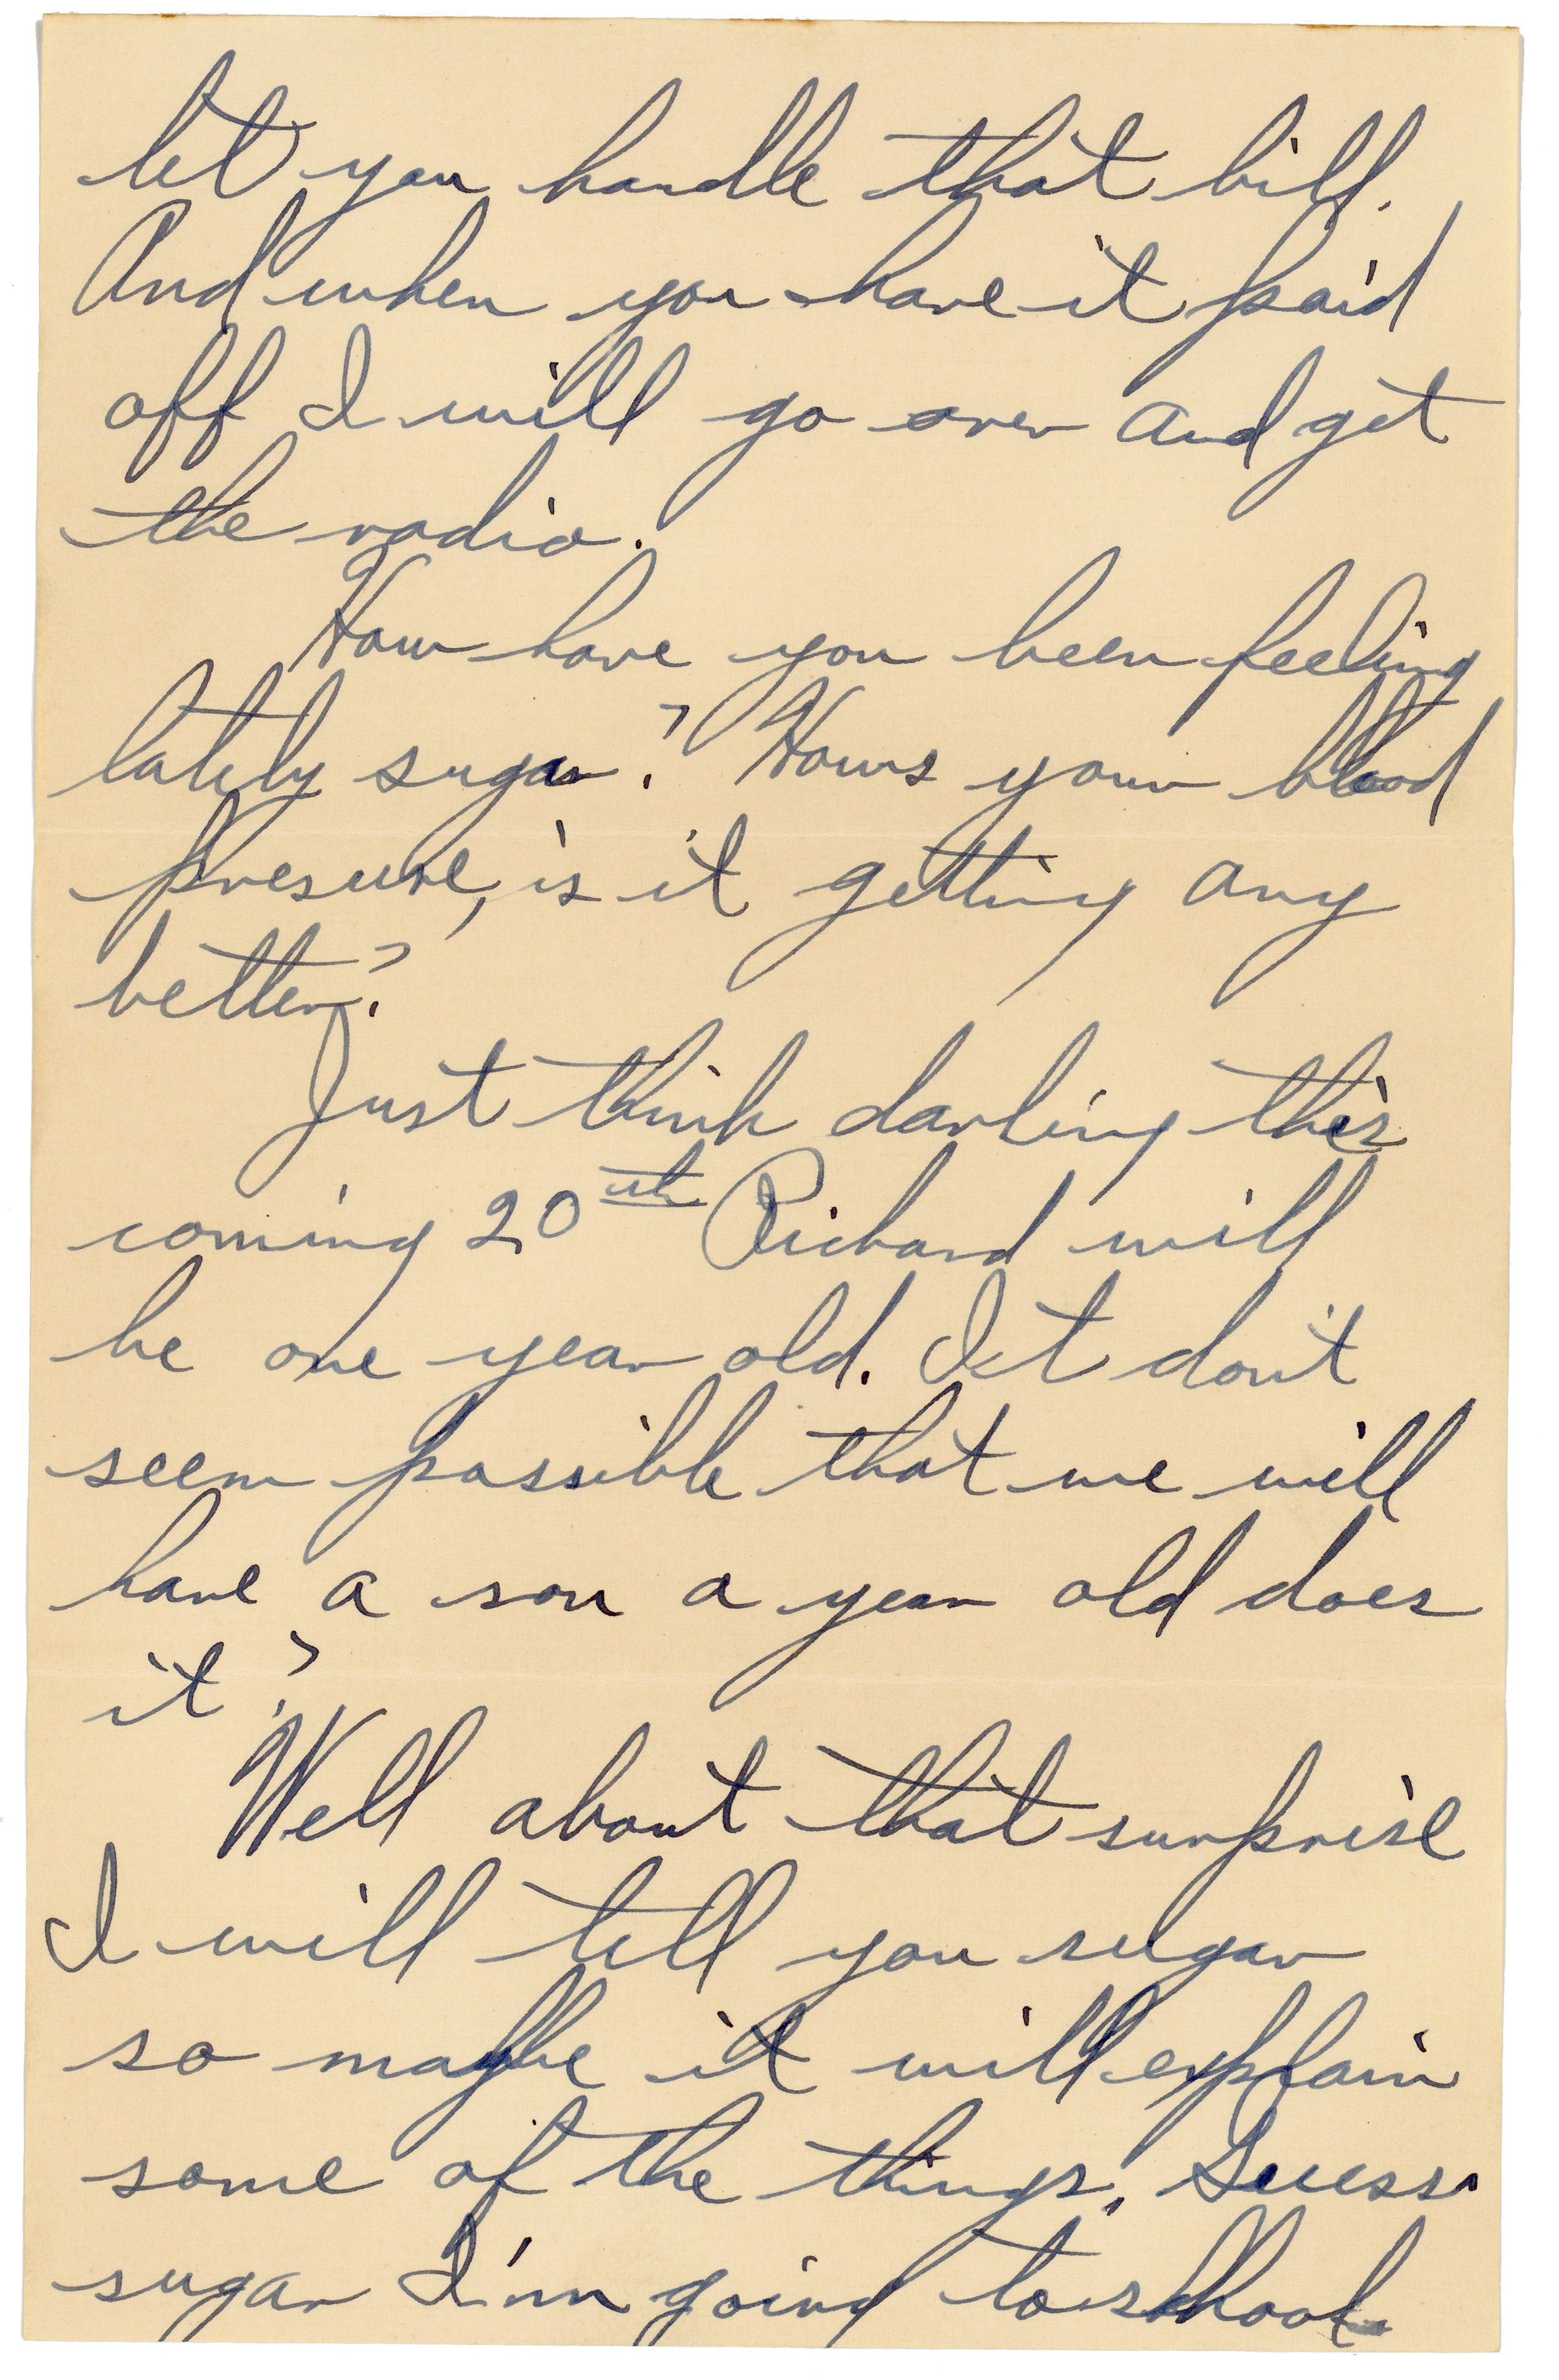 let you handle that bill.
And when you have it paid
off I will go over and get
the radio.
How have you been feeling
lately sugar? Hows your blood
presure, is it getting any
better?
Just think darling this
coming 20th Richard will
be one year old. It don't
seem possible that we will
have a son a year old does
it?
Well about that surprise
I will tell you sugar
so maybe it will explain
some of the things. Guess
sugar I'm going to school